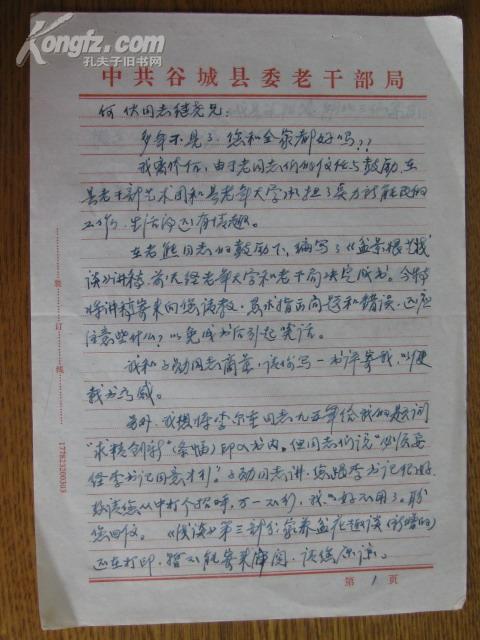 Kongfz.com
孔夫子旧书网
中共谷城县委老干部局
何伏同志继尧兄:
多年不见了,您和全家都好吗??
我离休后,由于老同志们的信任与鼓励,在
县老干部艺术团和县老年大学承担了吴力所能及的
工作,生活得还有情趣。
在老熊同志的鼓励下,编写了《盆景根艺浅
谈》讲稿,前天经老年大学和老干局决定成书。今特
将讲稿寄来向您请教,恳求指正问题和错误,还应
注意些什么?以免成书后引起笑话。
我和之动同志商量,请您写一书评寄我,以便
载书为感。
另外,我想将李尔重同志九五年给我的题词
"求精创新"(条幅)印入书内。但同志们说"必须要
经李书记同意才行"。之动同志讲,您跟李书记很好,
敬请您从中打个招呼,万一不行,我也好不用了。盼
您回信。《浅谈》第三部分:家养盆花趣谈(新增的)
还在打印,暂不能寄来审阅,请您原谅。
装订线
177823200303
第1页